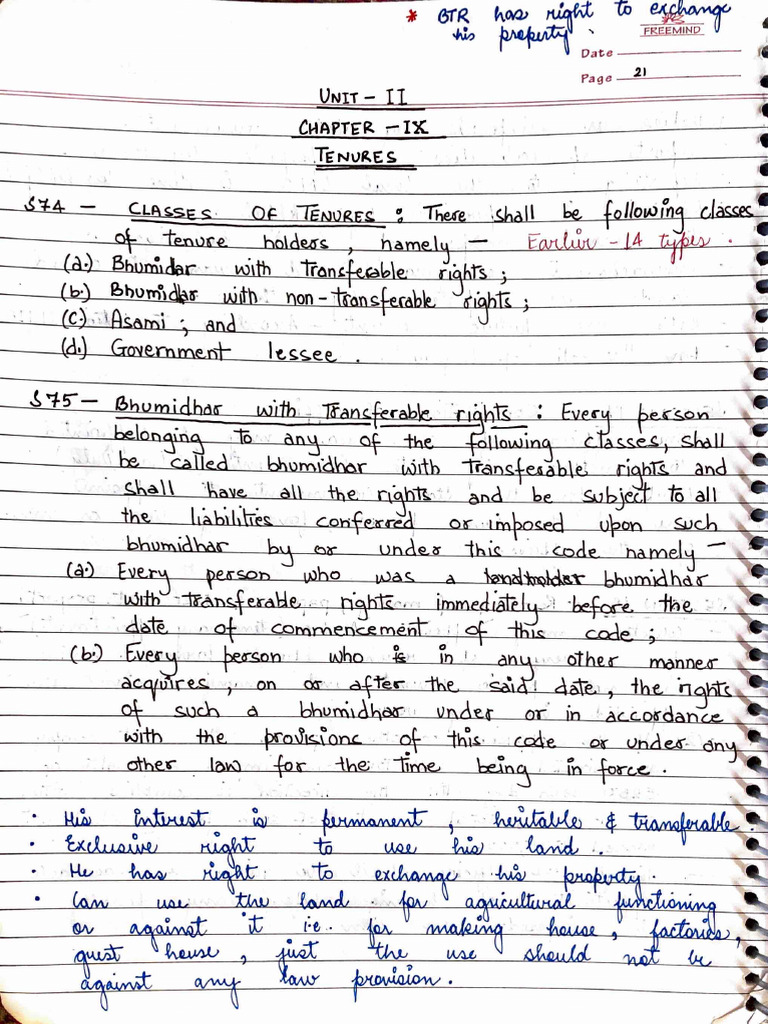 * BTR has right to exchange
his property.
FREEMIND
Date
Page 21
UNIT - II
CHAPTER - IX
TENURES
S74 - CLASSES OF TENURES : There shall be following classes
of tenure holders, namely - Earlier - 14 types.
(a.) Bhumidar with transferable rights;
(b.) Bhumidar with non-transferable rights;
(c.) Asami; and
(d.) Government lessee.
S75 - Bhumidhar with Transferable rights : Every person
belonging to any of the following classes, shall
be called bhumidhar with transferable rights and
shall have all the rights and be subject to all
the liabilities conferred or imposed upon such
bhumidhar by or under this code namely -
(a.) Every person who was a landholder bhumidhar
with transferable rights immediately before the
date of commencement of this code;
(b.) Every person who is in any other manner
acquires, on or after the said date, the rights
of such a bhumidhar under or in accordance
with the provisions of this code or under any
other law for the time being in force.
• His interest is permanent, heritable & transferable.
• Exclusive right to use his land.
• He has right to exchange his property.
• Can use the land for agricultural functioning
or against it i.e. for making house, factories,
guest house, just the use should not be
against any law provision.